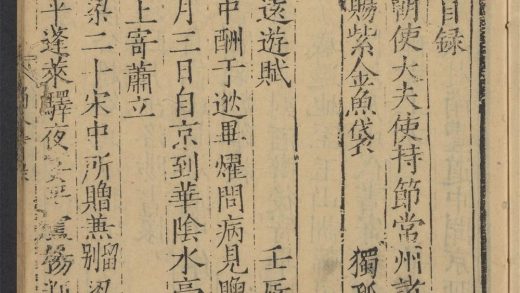 目録
朝使大夫使持節常州諸
賜紫金魚袋 獨孤
遠遊賦 壬辰
中酬于逖畢燿問病見贈
月三日自京到華陰水亭
上寄蕭立
梁二十宋中所贈兼留別梁
平蓬萊驛夜宴平